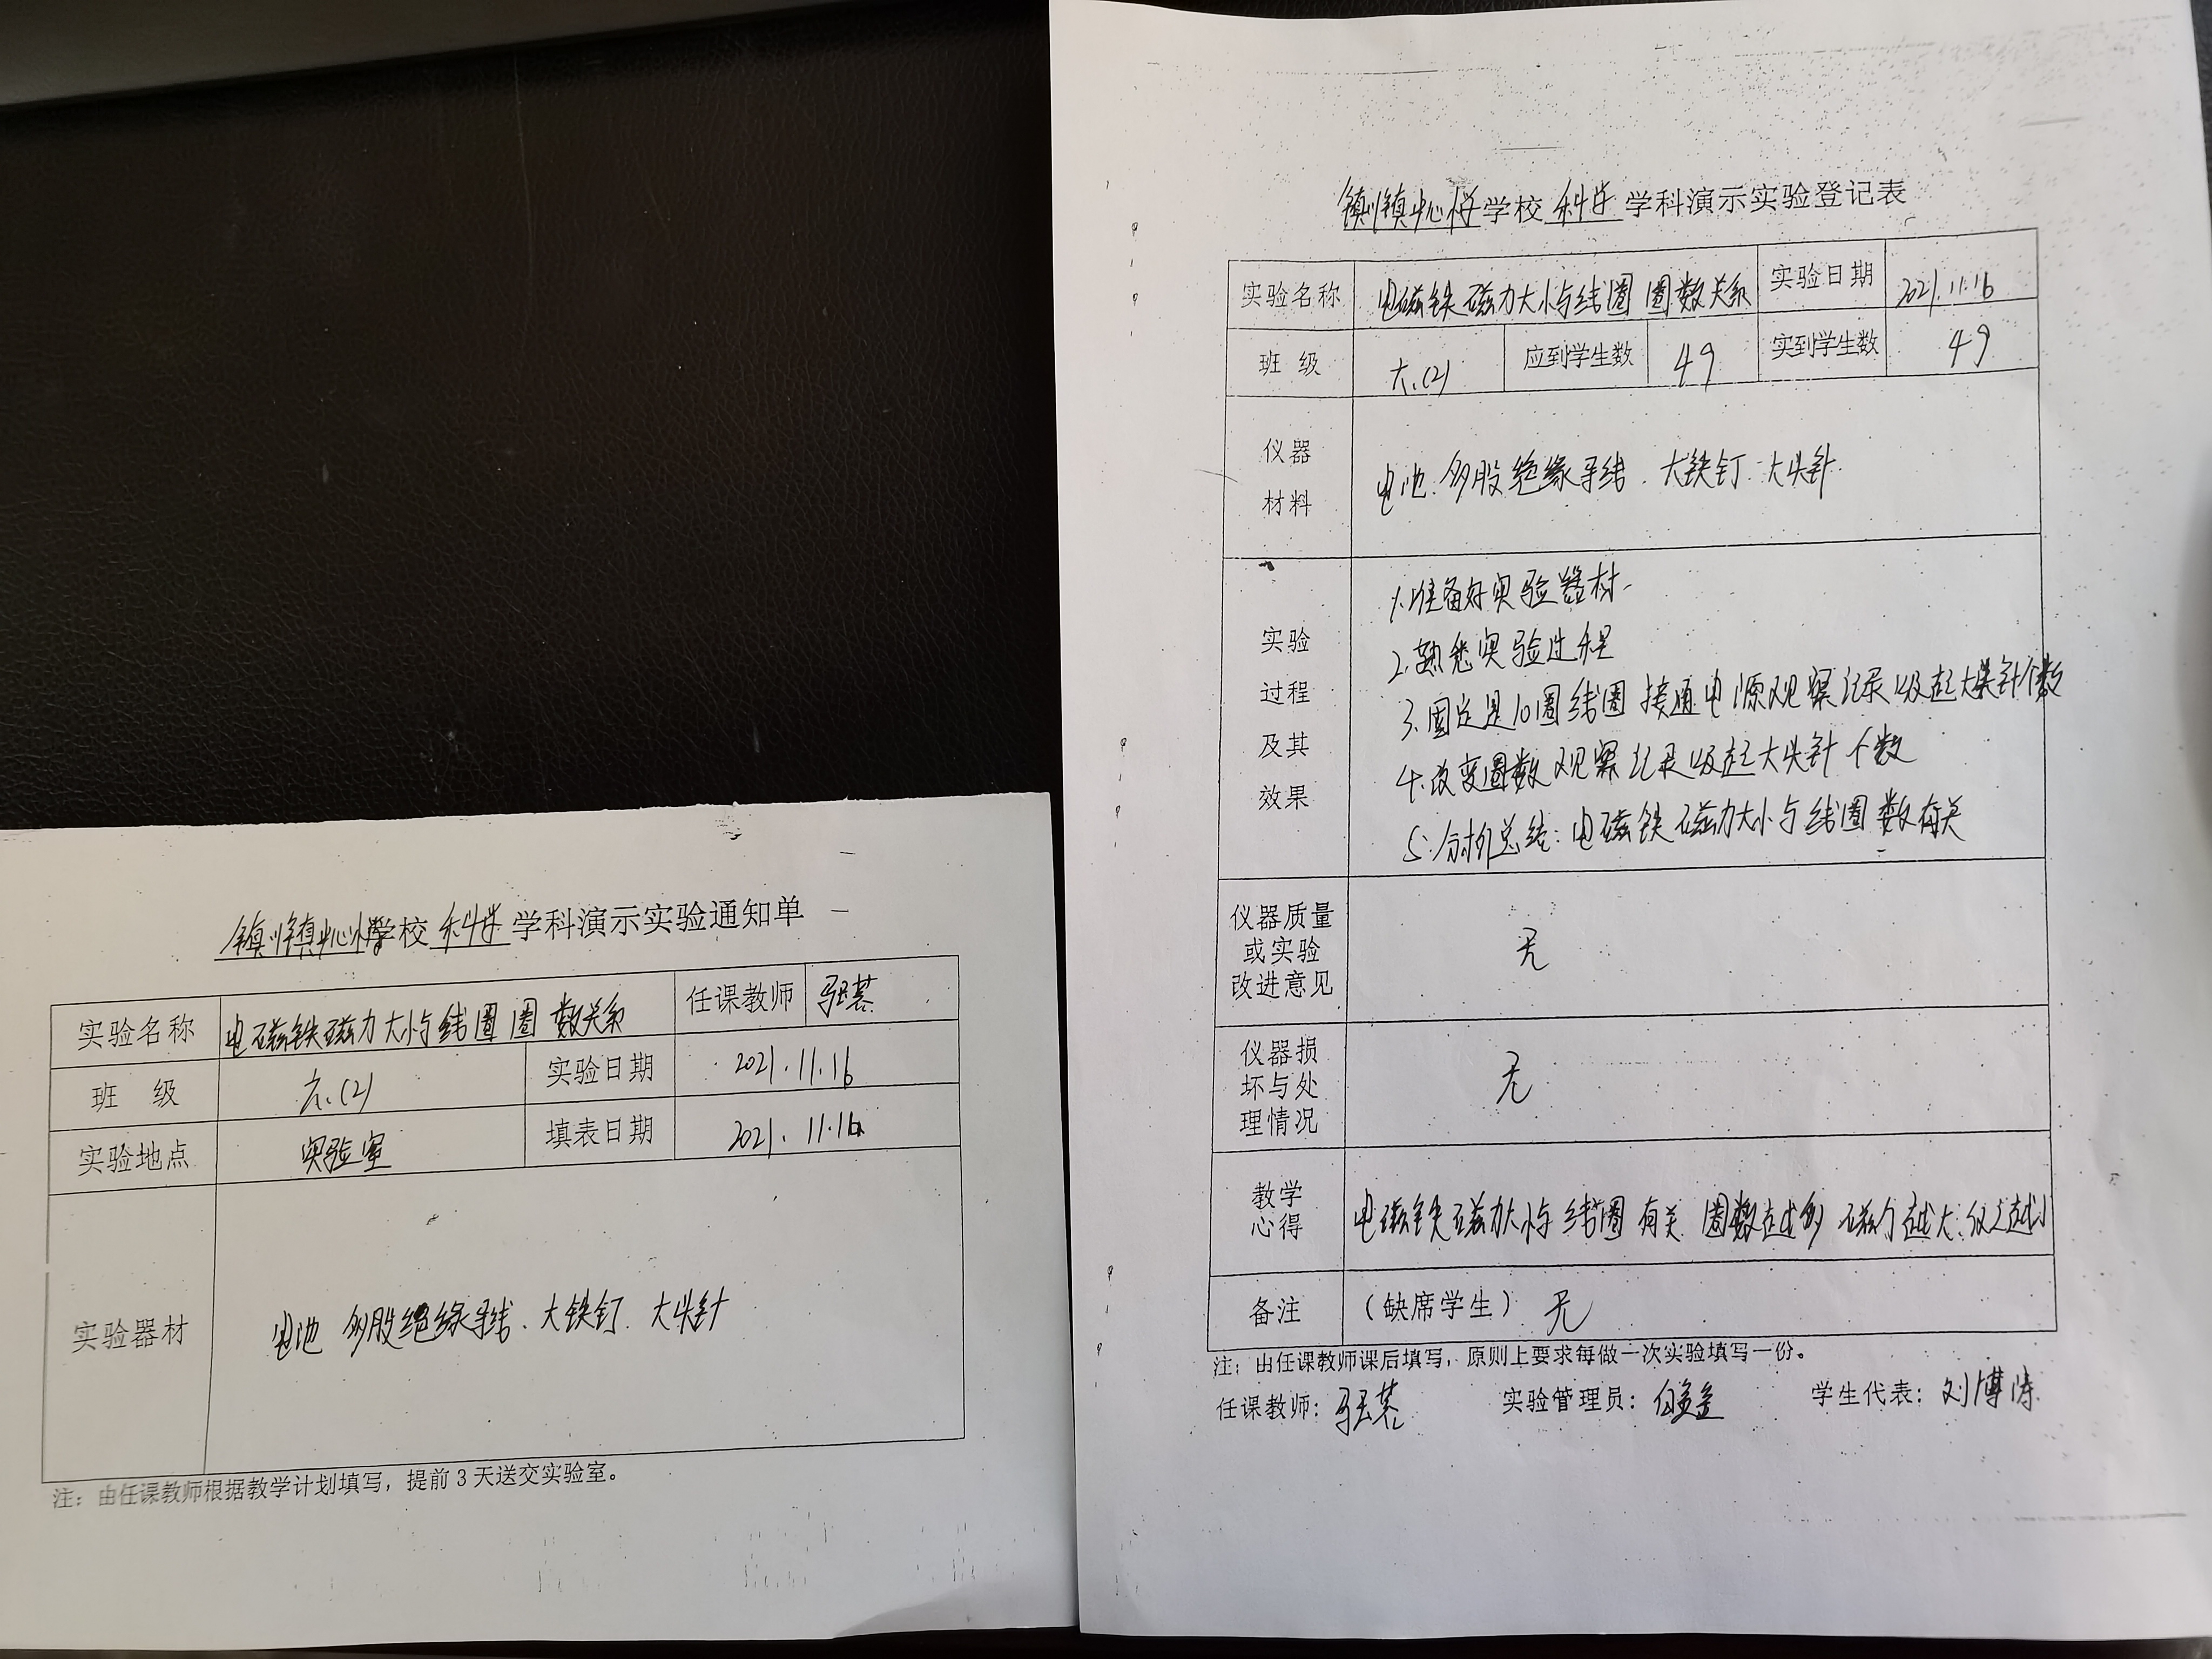 镇川镇中心小学学校 科学 学科演示实验通知单
实验名称 电磁铁磁力大小与线圈圈数关系 任课教师
班 级 六.(2) 实验日期 2021.11.16
实验地点 实验室 填表日期 2021.11.16
实验器材 电池 多股绝缘导线.大铁钉.大头针
注：由任课教师根据教学计划填写，提前3天送交实验室。
镇川镇中心小学学校 科学 学科演示实验登记表
实验名称 电磁铁磁力大小与线圈圈数关系 实验日期 2021.11.16
班 级 六.(2) 应到学生数 49 实到学生数 49
仪器
材料
电池.多股绝缘导线.大铁钉.大头针.
实验
过程
及其
效果
1.准备好实验器材.
2.熟悉实验过程
3.固定是10圈线圈接通电源观察记录吸起大头针个数
4.改变圈数观察记录吸起大头针个数
5.分析总结：电磁铁磁力大小与线圈数有关
仪器质量
或实验
改进意见
无
仪器损
坏与处
理情况
无
教学
心得
电磁铁磁力大小与线圈有关 圈数越多 磁力越大；反之越小
备注 （缺席学生） 无
注：由任课教师课后填写，原则上要求每做一次实验填写一份。
任课教师： 实验管理员： 学生代表：刘博涛